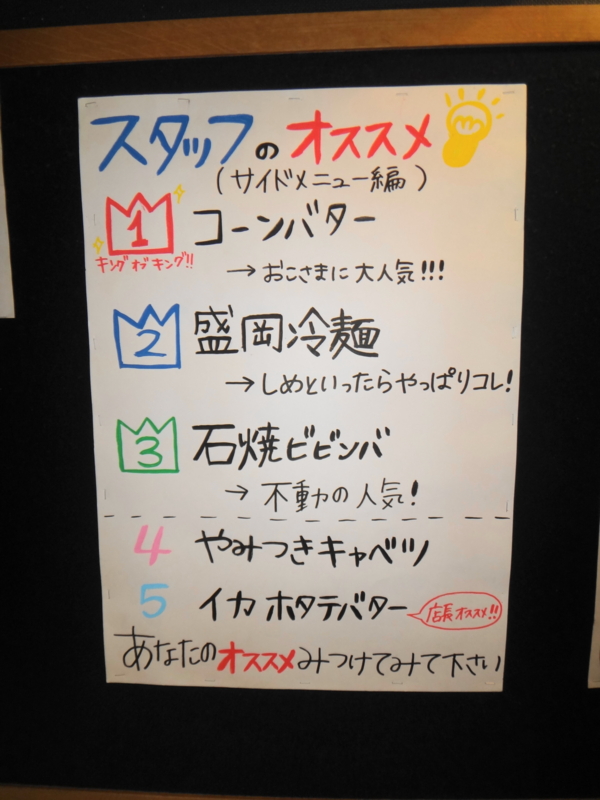 スタッフのオススメ
(サイドメニュー編)
1 コーンバター
キング オブ キング!!
→おこさまに大人気!!!
2 盛岡冷麺
→しめといったらやっぱりコレ!
3 石焼ビビンバ
→不動の人気!
4 やみつきキャベツ
5 イカホタテバター 店長オススメ!!
あなたのオススメみつけてみて下さい